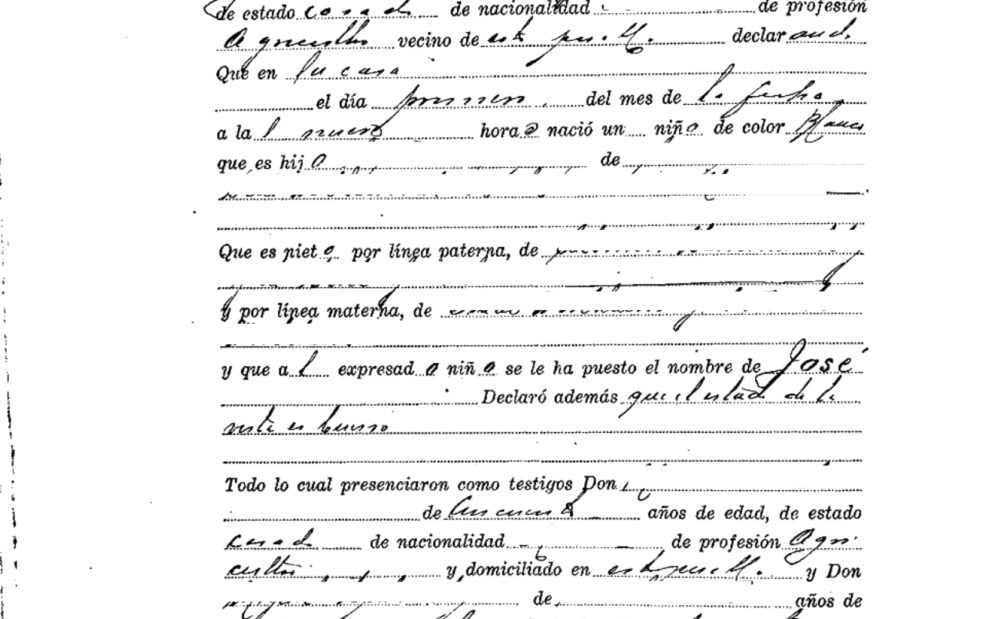 de estado casado de nacionalidad de profesión
Agricultor vecino de este pueblo declarando.
Que en su casa
el día primero del mes de la fecha,
a la l nueve horas nació un niño de color blanco
que es hijo de
Que es nieto por línea paterna, de
y por línea materna, de
y que a l expresado niño se le ha puesto el nombre de José
Declaró además que el estado de la
es bueno
Todo lo cual presenciaron como testigos Don
de años de edad, de estado
casado de nacionalidad de profesión Agri-
cultor y domiciliado en este pueblo y Don
de años de